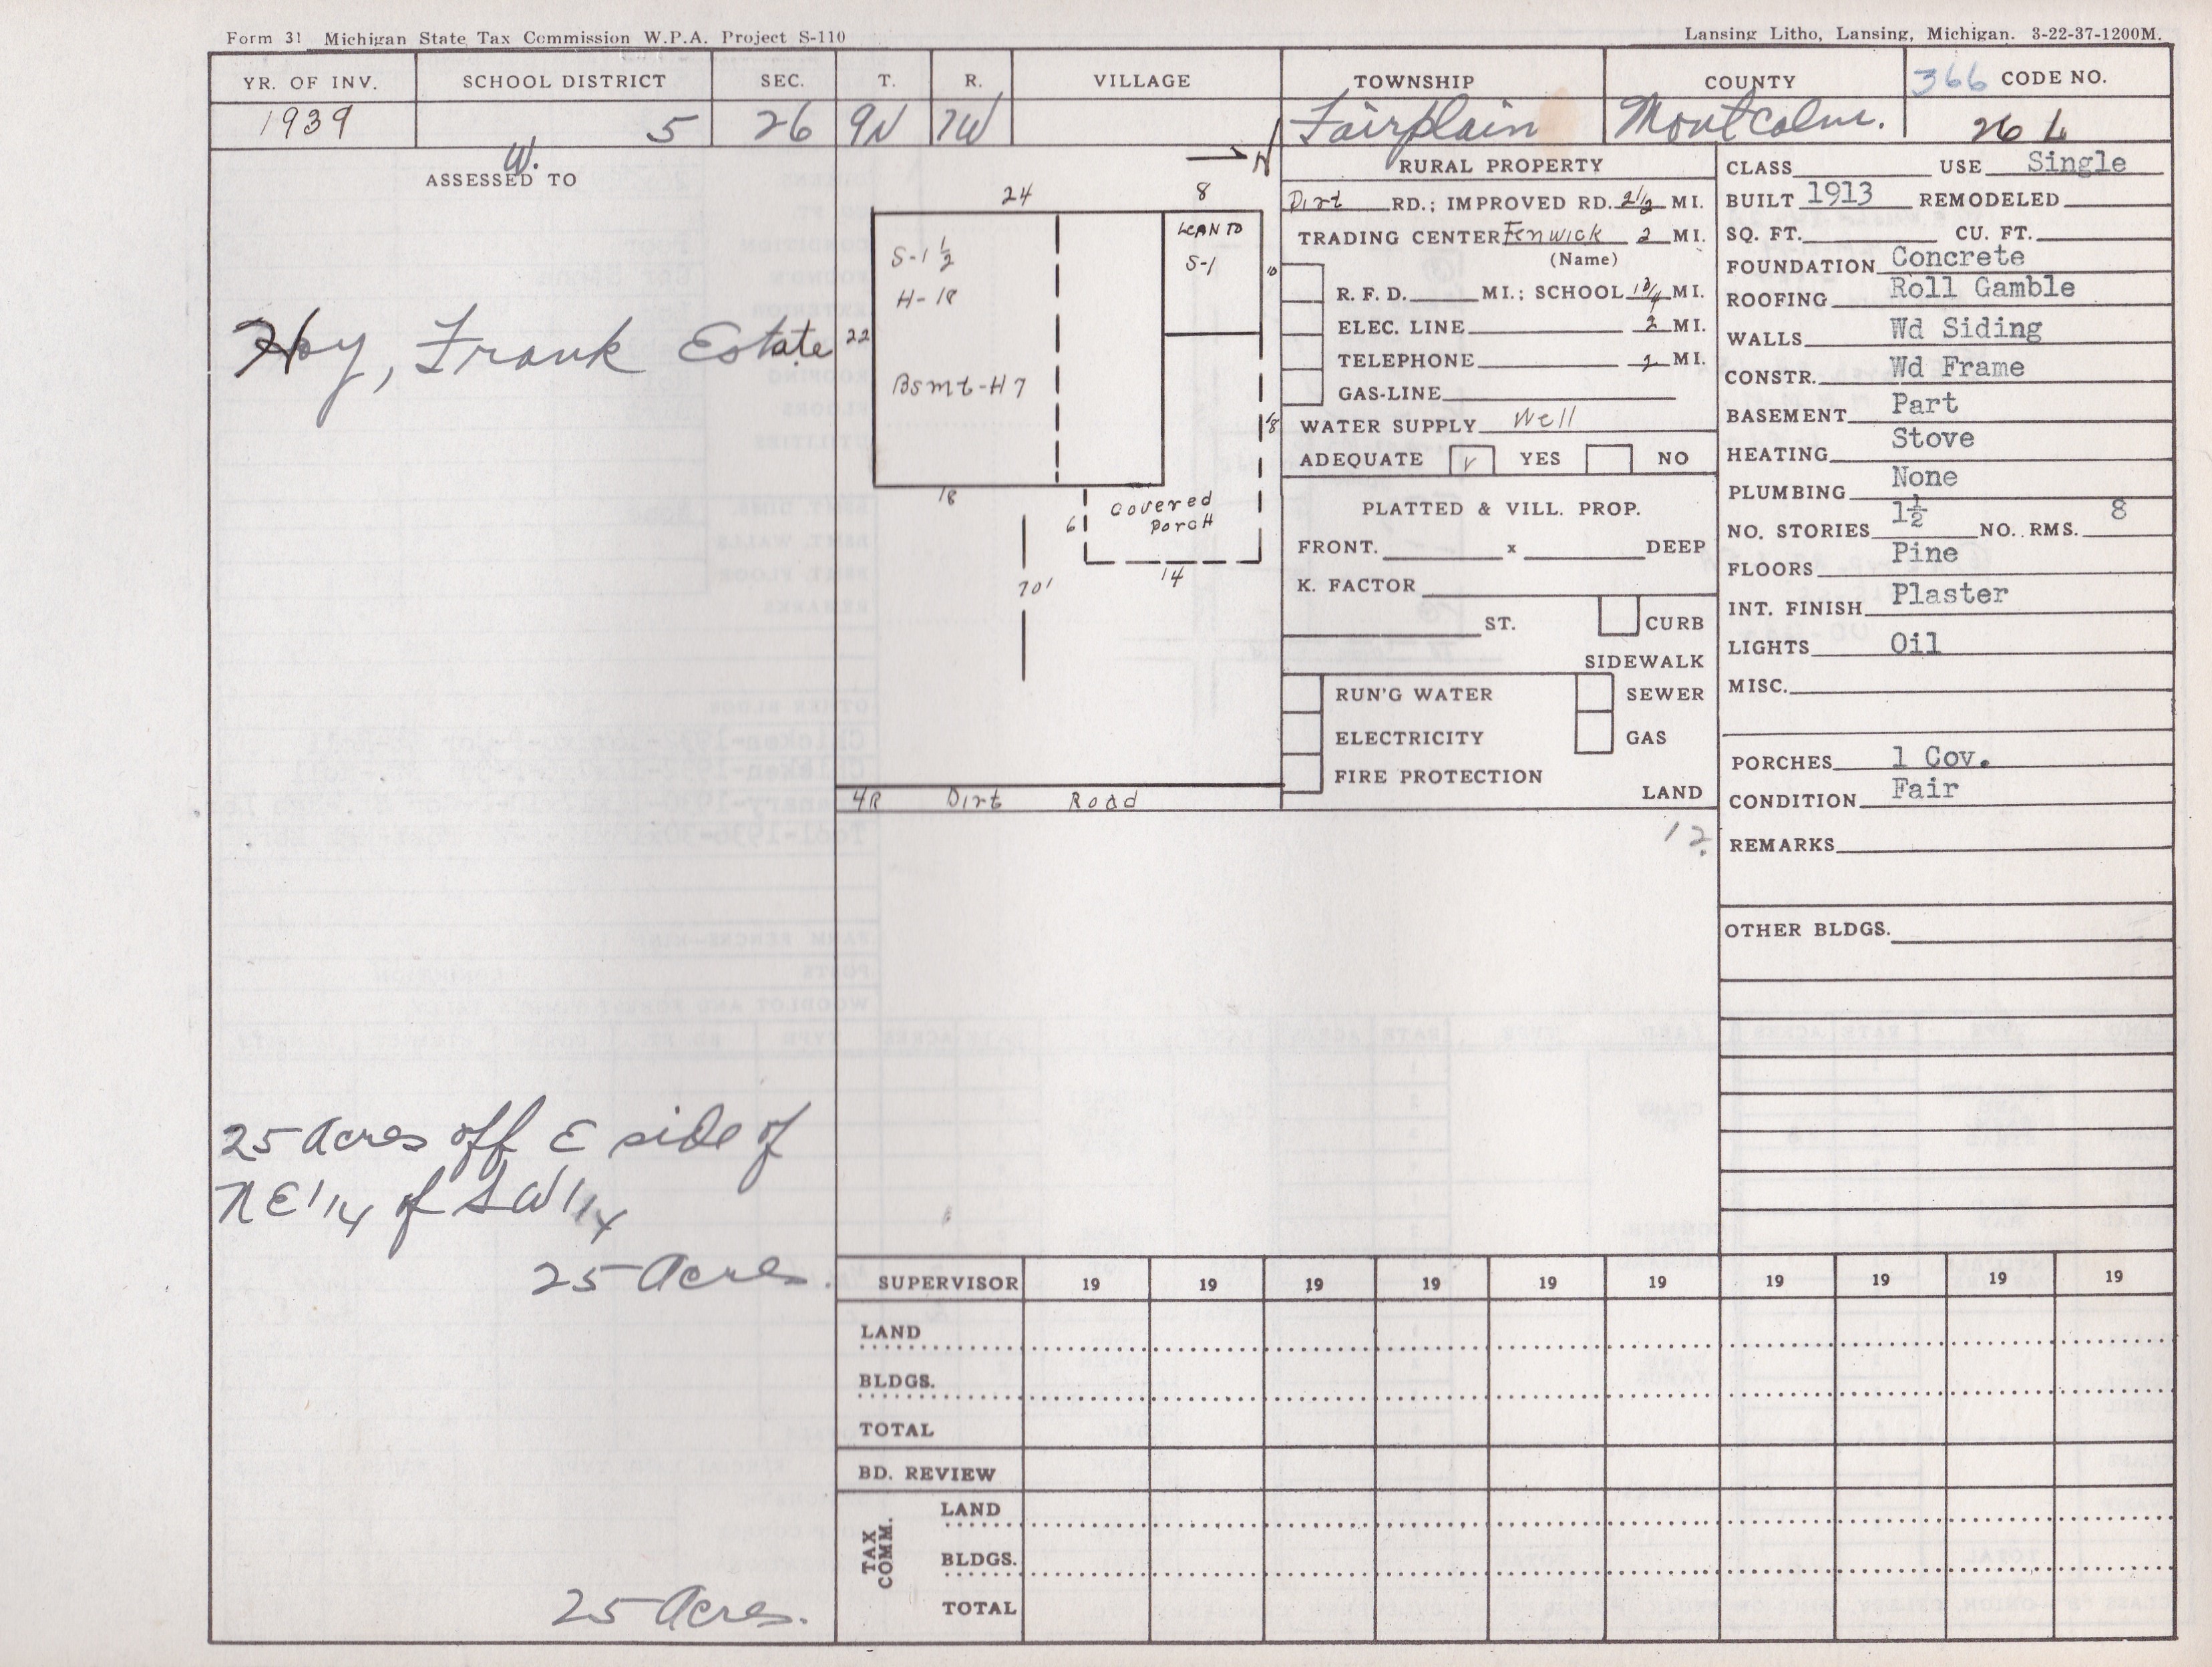 Form 31 Michigan State Tax Commission W.P.A. Project S-110
Lansing Litho, Lansing, Michigan. 3-22-37-1200M.
YR. OF INV. SCHOOL DISTRICT SEC. T. R. VILLAGE TOWNSHIP COUNTY 366 CODE NO.
1939 5 26 9N 7W Fairplain Montcalm. 26 L
W.
ASSESSED TO
Hoy, Frank Estate
25 Acres off E side of
NE 1/4 of SW 1/4
25 Acres.
25 Acres.
N
24 8
S-1 1/2
H-18
LEAN TO
S-1
10
22
Bsmt-H7
18
18
Covered
Porch
6
14
70'
4R Dirt Road
RURAL PROPERTY
Dirt RD.; IMPROVED RD. 2 1/2 MI.
TRADING CENTER Fenwick 2 MI.
(Name)
R. F. D. MI.; SCHOOL 1 3/4 MI.
ELEC. LINE 2 MI.
TELEPHONE MI.
GAS-LINE
WATER SUPPLY Well
ADEQUATE v YES NO
PLATTED & VILL. PROP.
FRONT. x DEEP
K. FACTOR
ST. CURB
SIDEWALK
RUN'G WATER SEWER
ELECTRICITY GAS
FIRE PROTECTION
LAND
CLASS USE Single
BUILT 1913 REMODELED
SQ. FT. CU. FT.
FOUNDATION Concrete
ROOFING Roll Gamble
WALLS Wd Siding
CONSTR. Wd Frame
BASEMENT Part
HEATING Stove
PLUMBING None
NO. STORIES 1½ NO. RMS. 8
FLOORS Pine
INT. FINISH Plaster
LIGHTS Oil
MISC.
PORCHES 1 Cov.
CONDITION Fair
REMARKS
OTHER BLDGS.
SUPERVISOR 19 19 19 19 19 19 19 19 19 19
LAND
BLDGS.
TOTAL
BD. REVIEW
TAX COMM.
LAND
BLDGS.
TOTAL